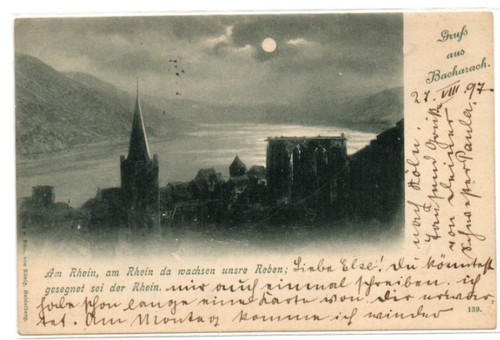 Gruß
aus
Bacharach.
27. VIII 97
Am Rhein, am Rhein da wachsen unsre Reben;
gesegnet sei der Rhein.
Liebe Else! Du könntest
mir auch einmal schreiben. ich
habe schon lange eine Karte von dir erwar-
tet. Am Montag komme ich wieder
nach Köln.
Tausend Grüße
von Deiner
Schwester Paula.
139.